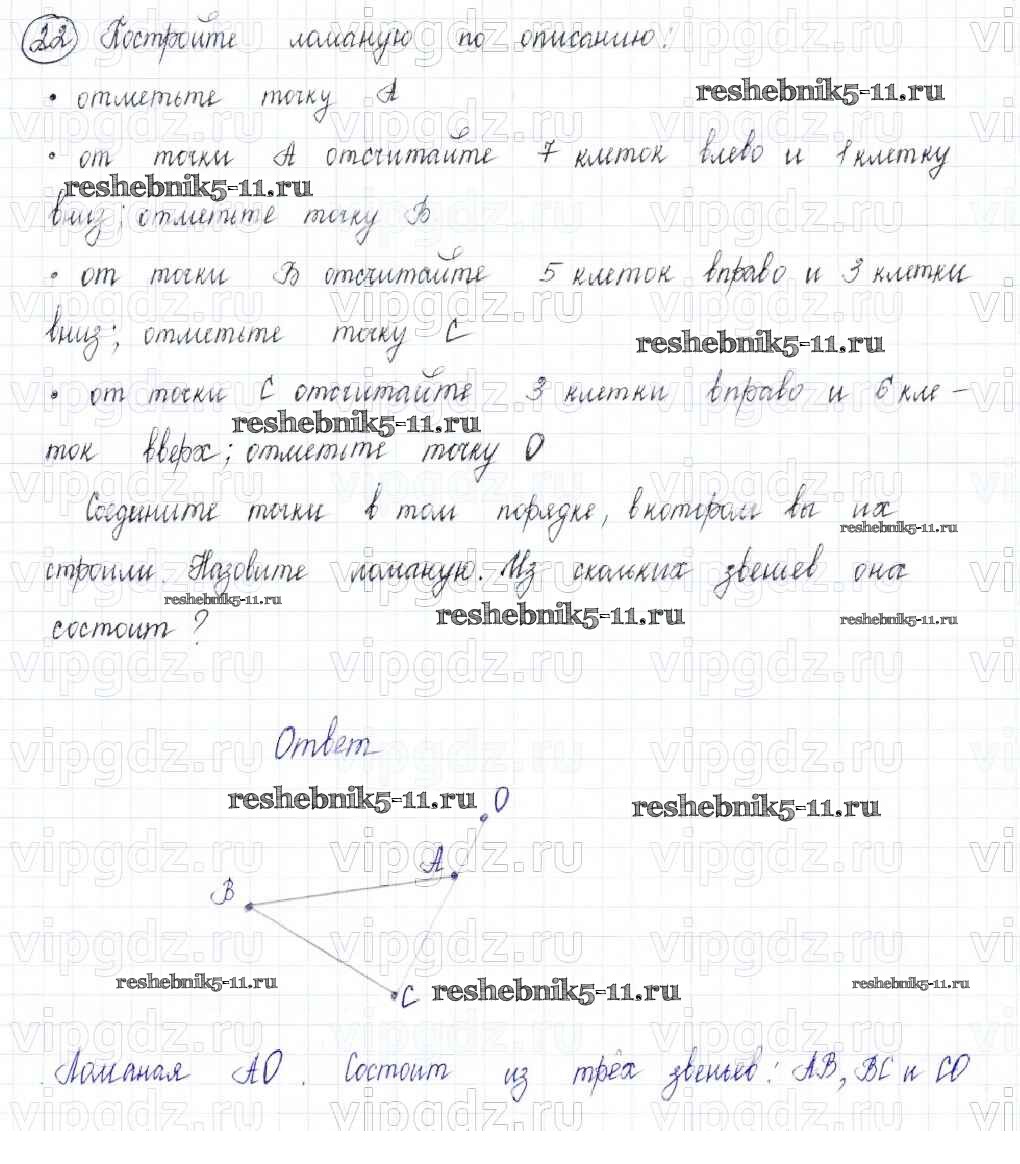 22 Постройте ломаную по описанию:
• отметьте точку А
reshebnik5-11.ru
• от точки А отсчитайте 7 клеток влево и 1 клетку
reshebnik5-11.ru
вниз; отметьте точку В
• от точки В отсчитайте 5 клеток вправо и 3 клетки
вниз; отметьте точку С
reshebnik5-11.ru
• от точки С отсчитайте 3 клетки вправо и 6 кле-
reshebnik5-11.ru
ток вверх; отметьте точку О
Соедините точки в том порядке, в котором вы их
reshebnik5-11.ru
строили. Назовите ломаную. Из скольких звеньев она
reshebnik5-11.ru
reshebnik5-11.ru
reshebnik5-11.ru
состоит?
Ответ
reshebnik5-11.ru
О
reshebnik5-11.ru
А
В
reshebnik5-11.ru
С
reshebnik5-11.ru
reshebnik5-11.ru
Ломаная АО. Состоит из трёх звеньев: АВ, ВС и СО
vipgdz.ru